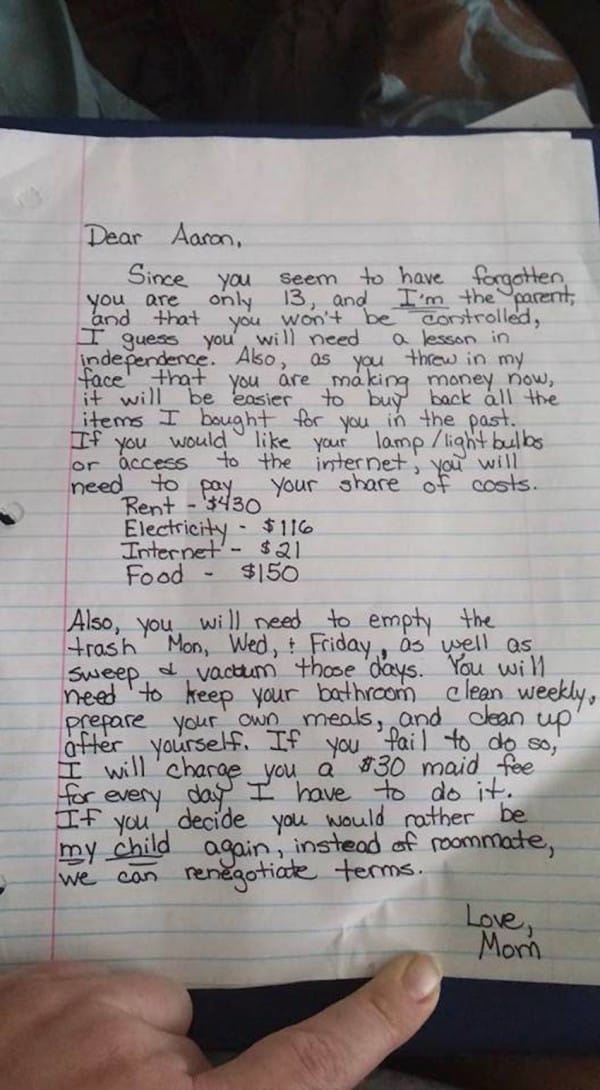 Dear Aaron,
Since you seem to have forgotten
you are only 13, and I'm the parent,
and that you won't be controlled,
I guess you will need a lesson in
independence. Also, as you threw in my
face that you are making money now,
it will be easier to buy back all the
items I bought for you in the past.
If you would like your lamp/light bulbs
or access to the internet, you will
need to pay your share of costs.
Rent - $430
Electricity - $116
Internet - $21
Food - $150
Also, you will need to empty the
trash Mon, Wed, & Friday, as well as
sweep & vacuum those days. You will
need to keep your bathroom clean weekly,
prepare your own meals, and clean up
after yourself. If you fail to do so,
I will charge you a $30 maid fee
for every day I have to do it.
If you decide you would rather be
my child again, instead of roommate,
we can renegotiate terms.
Love,
Mom